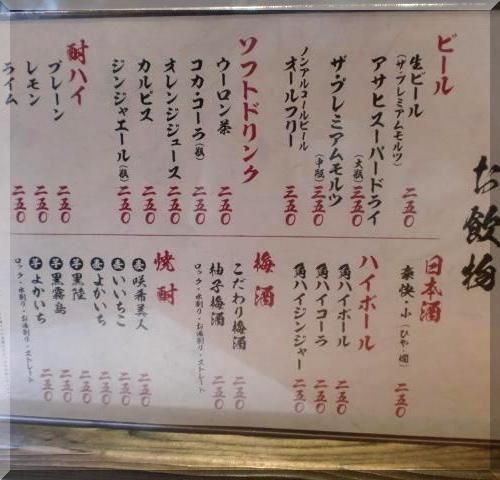 お飲物
ビール
生ビール 二五〇
(ザ・プレミアムモルツ)
アサヒスーパードライ(大瓶) 三五〇
ザ・プレミアムモルツ(中瓶) 三五〇
ノンアルコールビール
オールフリー 三五〇
ソフトドリンク
ウーロン茶 二五〇
コカ・コーラ(瓶) 二五〇
オレンジジュース 二五〇
カルピス 二五〇
ジンジャエール(瓶) 二五〇
酎ハイ
プレーン 二五〇
レモン 二五〇
ライム 二五〇
日本酒
豪快・小(ひや・燗) 二五〇
ハイボール
角ハイボール 二五〇
角ハイコーラ 二五〇
角ハイジンジャー 二五〇
梅酒
こだわり梅酒 二五〇
柚子梅酒 二五〇
ロック・水割り・お湯割り・ストレート
焼酎
麦 咲希美人 二五〇
麦 いいちこ 二五〇
麦 よかいち 二五〇
芋 黒陸 二五〇
芋 黒霧島 二五〇
芋 よかいち 二五〇
ロック・水割り・お湯割り・ストレート